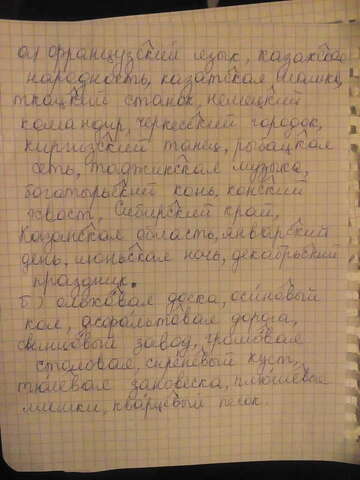 а) французский язык, казахская
народность, казатская шашка,
ткацкий станок, немецкий
командир, черкесский городок,
киргизский танец, рыбацкая
сеть, таджикская музыка,
богатырьский конь, конский
хвост, Сибирский край,
Казанская область, январский
день, июньская ночь, декабрьский
праздник.
б) ольховая доска, осиновый
кол, асфальтовая дорога,
свинцовый завод, грибовая
столовая, сиреневый куст,
тюлевая занавеска, плюшевые
мишки, кварцевый песок.